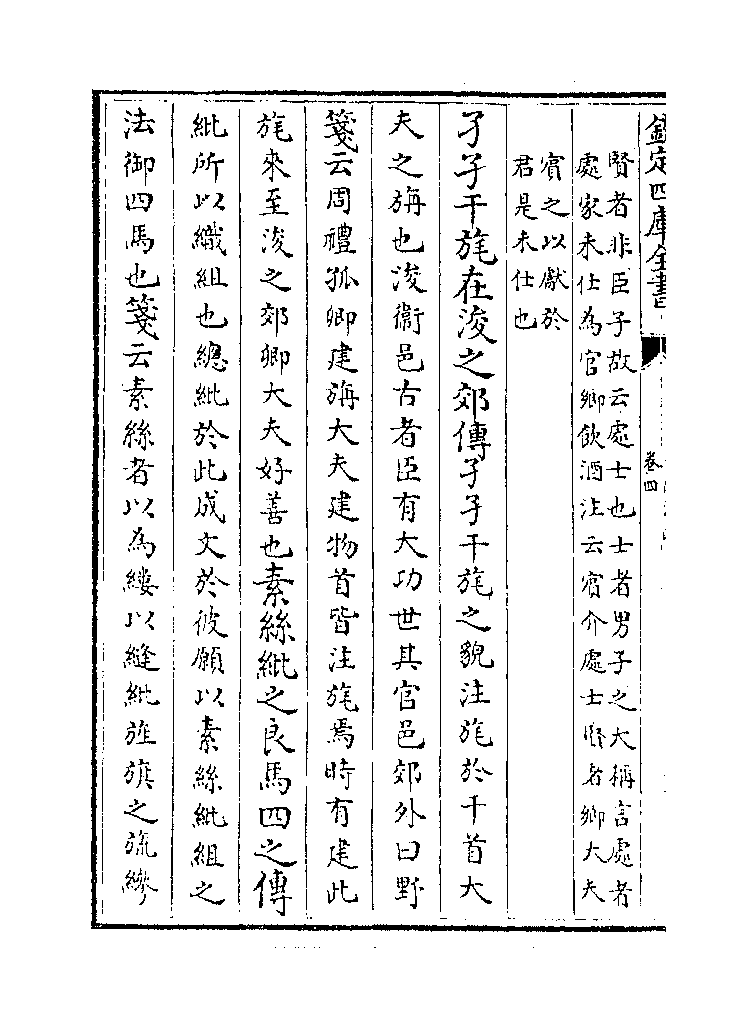 欽定四庫全書
卷四
賢者非臣子故云處士也士者男子之大稱言處者
處家未仕為官鄉飲酒注云賓介處士賢者鄉大夫
賓之以獻於
君是未仕也
孑孑干旄在浚之郊傳孑孑干旄之貌注旄於干首大
夫之旃也浚衞邑古者臣有大功世其官邑郊外曰野
箋云周禮孤卿建旃大夫建物首皆注旄焉時有建此
旄來至浚之郊卿大夫好善也素絲紕之良馬四之傳
紕所以織組也總紕於此成文於彼願以素絲紕組之
法御四馬也箋云素絲者以為縷以縫紕旌旗之旒縿